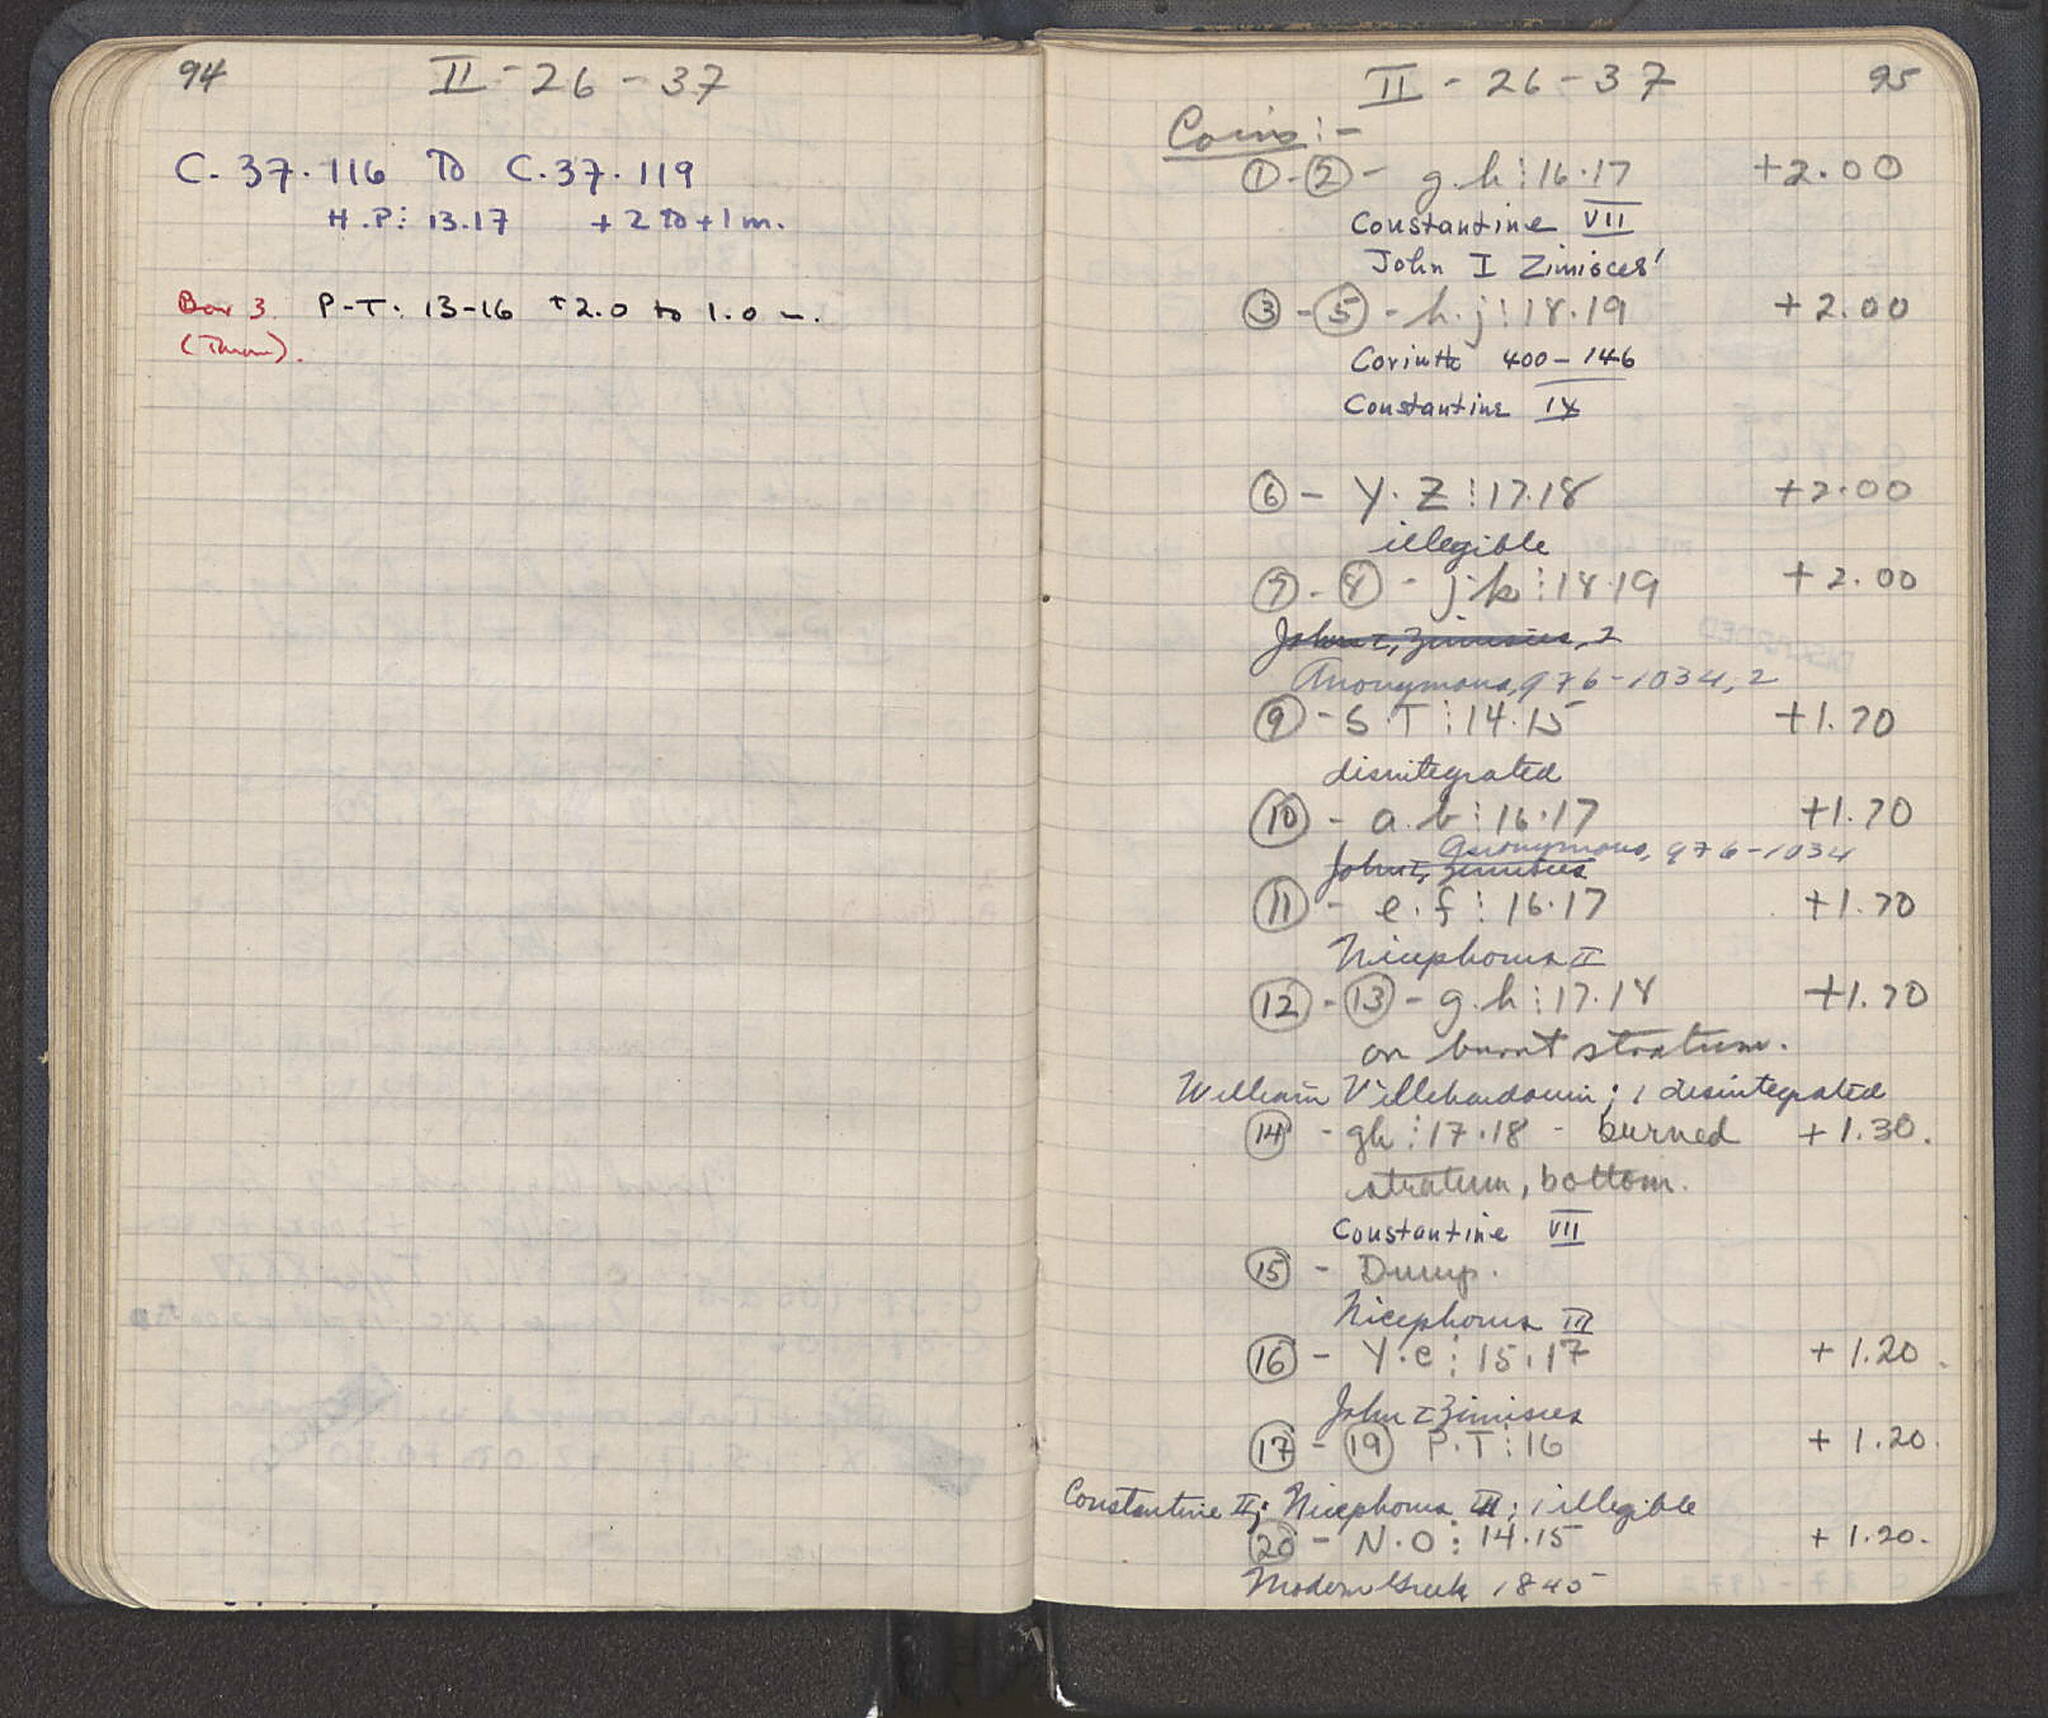 94
II - 26 - 37
C. 37. 116 To C. 37. 119
H.P: 13.17 + 2 to + 1 m.
Box 3. P-T: 13-16 +2.0 to 1.0 m.
(Thrown).
II - 26 - 37 95
Coins :-
① - ② - g.h : 16.17 +2.00
Constantine VII
John I Zimisces'
③ - ⑤ - h.j : 18.19 +2.00
Corinth 400 - 146
Constantine IX
⑥ - Y.Z : 17.18 +2.00
illegible
⑦ - ⑧ - j.k : 18.19 +2.00
John I, Zimisces, 2
Anonymous, 976-1034, 2
⑨ - S.T : 14.15 +1.70
disintegrated
⑩ - a.b : 16.17 +1.70
Anonymous, 976-1034
John I, Zimisces
⑪ - e.f : 16.17 +1.70
Nicephorus II
⑫ - ⑬ - g.h : 17.18 +1.70
on burnt stratum.
William Villehardouin ; 1 disintegrated
⑭ - gh : 17.18 - burned +1.30.
stratum, bottom.
Constantine VII
⑮ - Dump.
Nicephorus III
⑯ - Y.e : 15.17 +1.20.
John I Zimisces
⑰ - ⑲ P.T : 16 +1.20.
Constantine II; Nicephorus III; 1 illegible
⑳ - N.O : 14.15 +1.20.
Modern Greek 1845